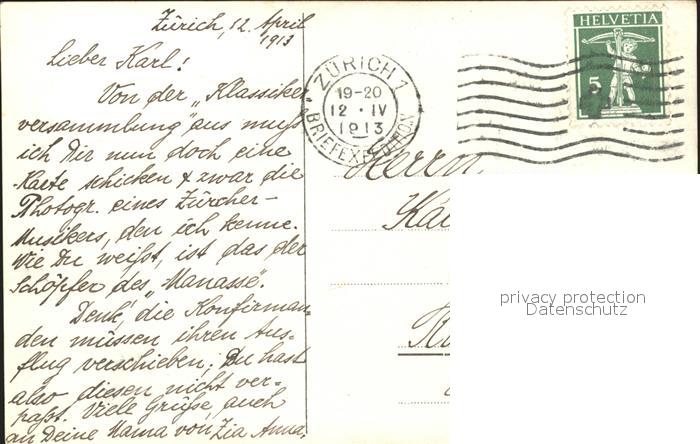 Zürich, 12. April
1913
Lieber Karl!
Von der „Klassiker
versammlung" aus muß
ich Dir nun doch eine
Karte schicken & zwar die
Photogr. eines Zürcher-
Musikers, den ich kenne.
Wie Du weißt, ist das der
Schöpfer des „Manasse".
Denk', die Konfirman-
den müssen ihren Aus-
flug verschieben; Du hast
also diesen nicht ver-
paßt. Viele Grüße, auch
an Deine Mama von Tia Anna.
ZÜRICH 1
19-20
12 · IV
1913
BRIEFEXPEDITION
HELVETIA
5
Herrn
privacy protection
Datenschutz